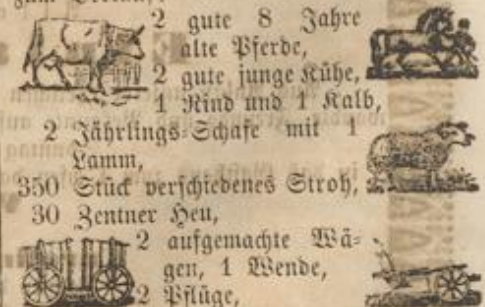 2 gute 8 Jahre
alte Pferde,
2 gute junge Kühe,
1 Rind und 1 Kalb,
2 Jährlings-Schafe mit 1
Lamm,
350 Stück verschiedenes Stroh,
30 Zentner Heu,
2 aufgemachte Wä-
gen, 1 Wende,
2 Pflüge,